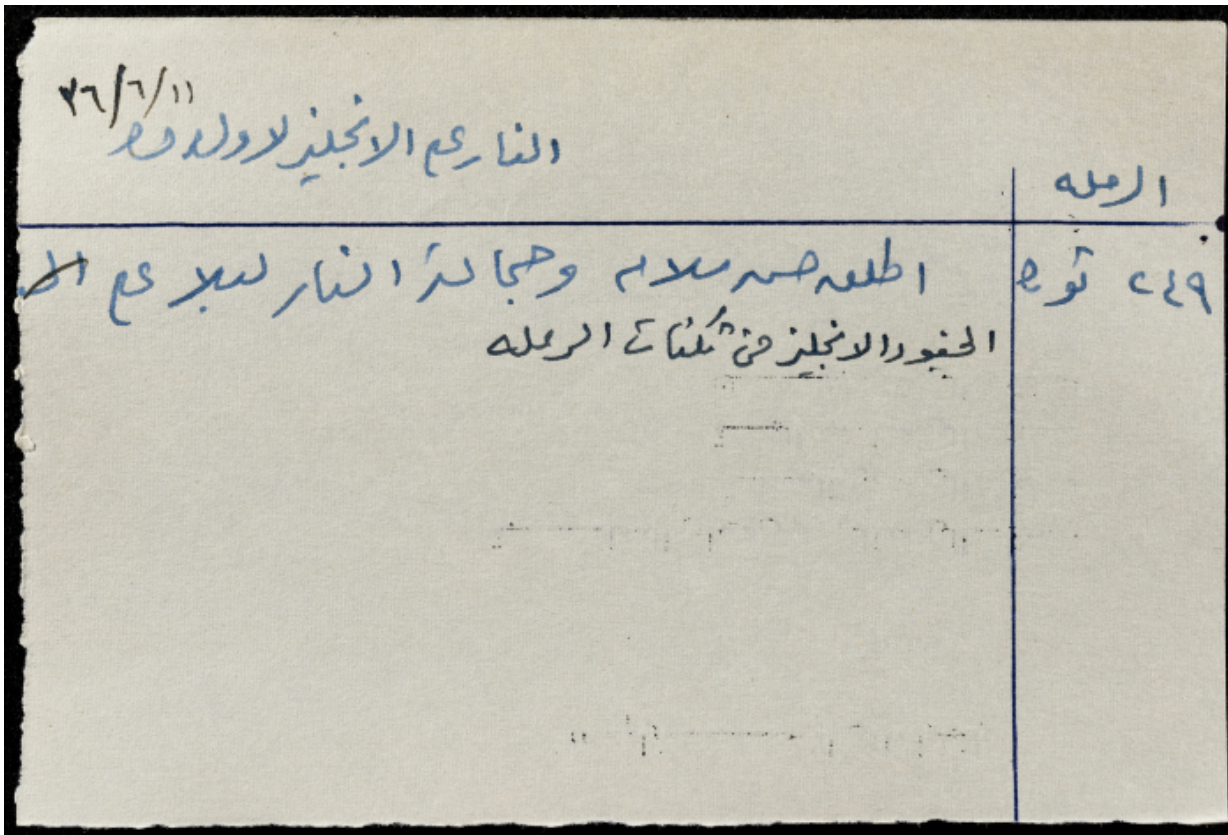 ٣٦/٦/١١
النار على الانجليز لاول مره
الرمله
٢٤٩ ثوره
اطلق حسن سلامه وجماعته النار ليلا على
الجنود الانجليز في ثكنات الرمله